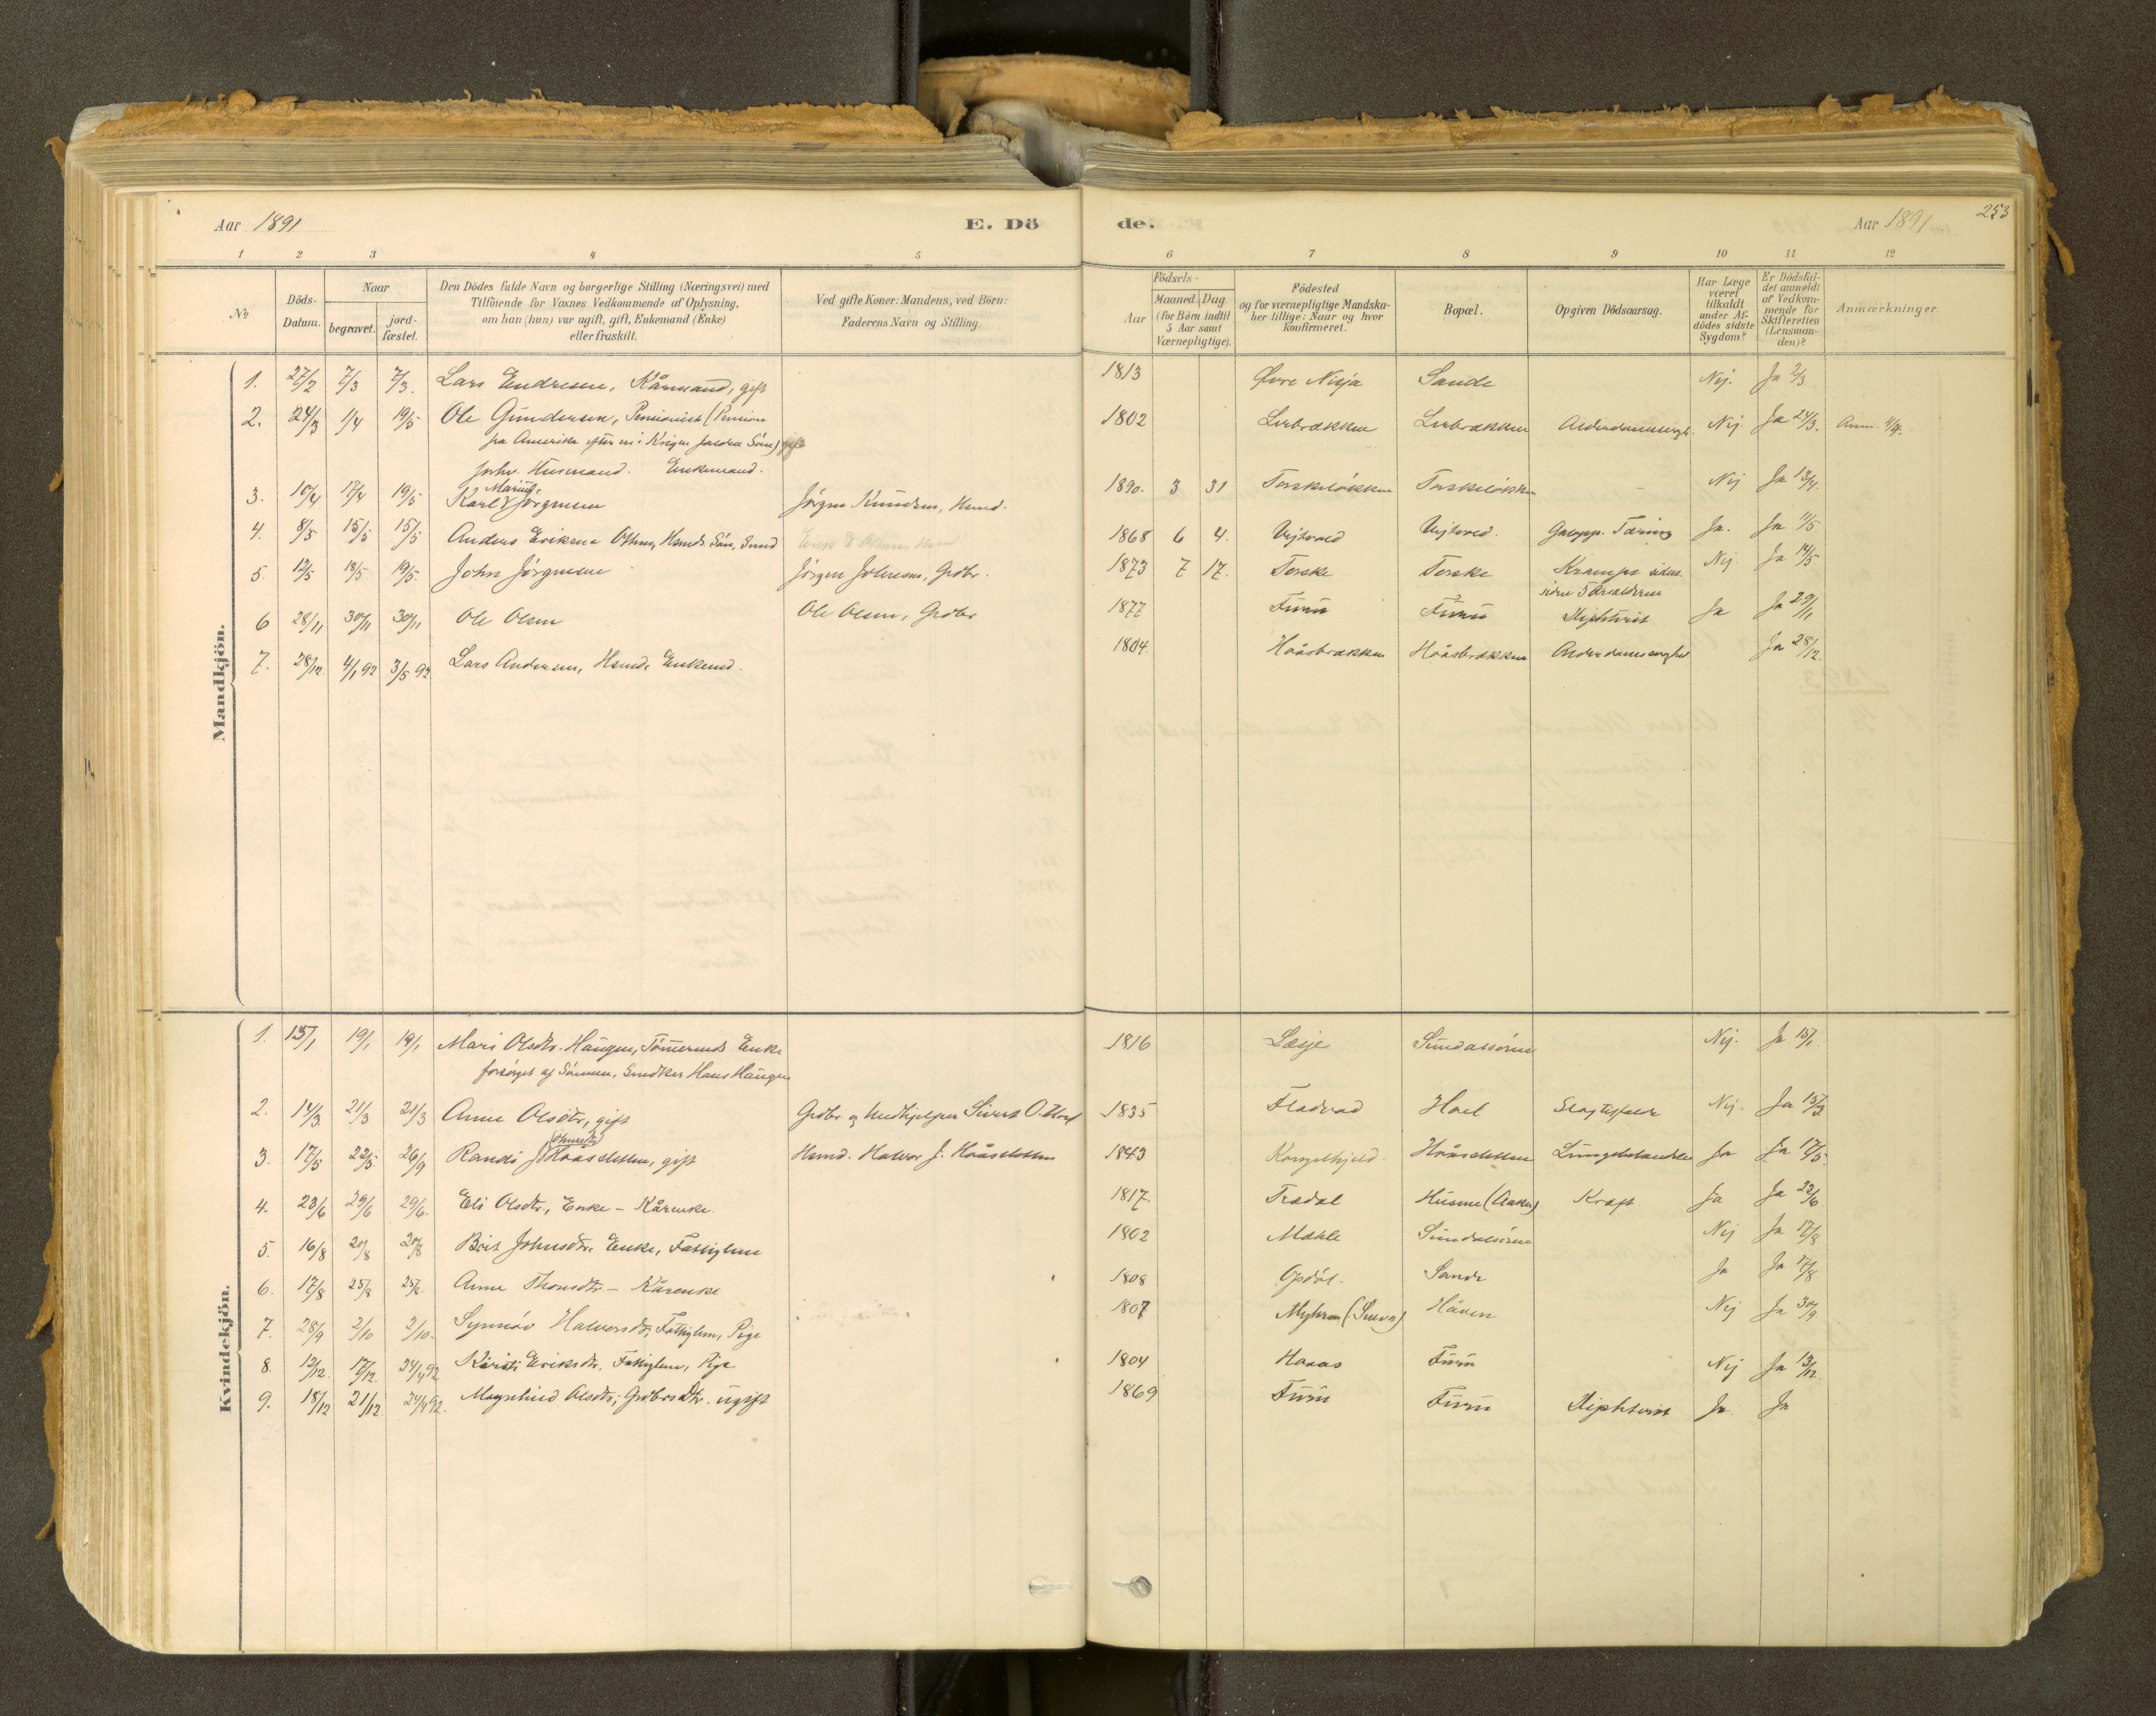 Aar 1891 E. Dö de. Aar 1891 253
1 2 3 4 5 6 7 8 9 10 11 12
№ Döds-Datum. Naar begravet. jord-fæstet. Den Dödes fulde Navn og borgerlige Stilling (Næringsvei) med Tilföiende for Voxnes Vedkommende af Oplysning, om han (hun) var ugift, gift, Enkemand (Enke) eller fraskilt. Ved gifte Koner: Mandens, ved Börn: Faderens Navn og Stilling. Födsels- Aar Maaned. Dag (for Börn indtil 5 Aar samt Værnepligtige). Födested og for værnepligtige Mandskaber tillige: Naar og hvor konfirmeret. Bopæl. Opgiven Dödsaarsag. Har Læge været tilkaldt under Afdödes sidste Sygdom? Er Dödsfaldet anmeldt af Vedkommende for Skifteretten (Lensmanden)? Anmærkninger
Mandkjön.
1. 27/2 7/3 7/3. Lars Endresen, Kårmand, gift 1813 Øvre Nisja Sande Nej. Ja 2/3.
2. 24/3 1/4 19/5 Ole Gundersen, Pensionist (Pension 1802 Lirbrækken Lirbrækken Alderdomssvagh. Nej Ja 24/3. Anm. 4/4.
fra Amerika efter en i Krigen falden Søn)
forhv. Husmand. Enkemand.
3. 10/4 17/4 19/5 Karl Marius Jørgensen Jörgen Knudsen, Hsmd. 1890. 3 31 Torskeløkken Torskeløkken - Nej Ja 13/4.
4. 8/5 15/5 15/5 Anders Eriksen Othem, Hsmds Søn, Smed 1868 6 4. Vijtved Vijtved. Galopp. Tæring Ja. Ja 11/5
5. 12/5 18/5 19/5. John Jørgensen Jörgen Johnsen, Grdbr. 1873 7 17. Torske Torske Krampe siden Nej Ja 14/5
5 Årsalderen
6 28/11 30/11 30/11 Ole Olsen Ole Olsen, Grdbr 1877 Furu Furu Diphterit Ja Ja 29/11
7. 28/12 4/1 92 3/5 92 Lars Andersen, Hsmd, Enkemd. 1804. Hååsbrækken Hååsbrækken Alderdomssvaghed Ja 28/12.
Kvindekjön.
1. 15/1 19/1 19/1 Mari Olsdtr. Haugen, Tömmermds Enke 1816 Lesje Sundalsören Nej. Ja 15/1
forsörget af Sönnen, Snedker Hans Haugen
2. 14/3 21/3 21/3 Anne Olsdtr, gift Grdbr. og Medhjelper Sivert O. Hoel 1835 Fladvad Hoel Slagtilfælde Nej. Ja 15/3
3. 17/5 22/5 26/9 Randi Johnsdtr Hååsletten, gift Hsmd. Halvor J. Hååsletten 1843 Kongelskjeld Hååsletten Lungebetændelse Ja Ja 17/5.
4. 23/6 29/6 29/6. Eli Olsdtr., Enke - Kårenke. 1817. Tredal Husene (Aaker) Kræft Ja Ja 23/6
5. 16/8 20/8 20/8 Brit Johnsdtr. Enke, Fattiglem 1802 Mæhle Sundalsören Nej Ja 17/8
6. 17/8 25/8 25/8. Anne Thomsdtr. - Kårenke 1808 Opdöl. Sande Ja Ja 17/8
7. 28/9 2/10 2/10. Synnöv Halvorsdtr, Fattiglem, Pige 1807 Håven Nej Ja 30/9
8. 12/12. 17/12. 24/4 92 Kirsti Eriksdtr. Fattiglem, Pige 1804 Haaas Furu Nej Ja 13/12.
9. 18/12 21/12 24/4 92. Magnhild Olsdtr; Grdbrs Dtr. ugift 1869 Furu Furu Diphterit Ja Ja